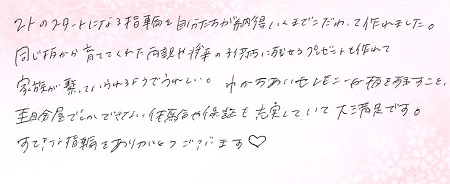 2人のスタートになる指輪を自分たちが納得いくまでこだわって作れました。
同じ板から育ててくれた両親や将来の子供に残せるプレゼントも作れて
家族が繋っていられるようでうれしい。
音金屋でしかできない保障や保証も充実していて大満足です。
すてきな指輪をありがとうございます♡